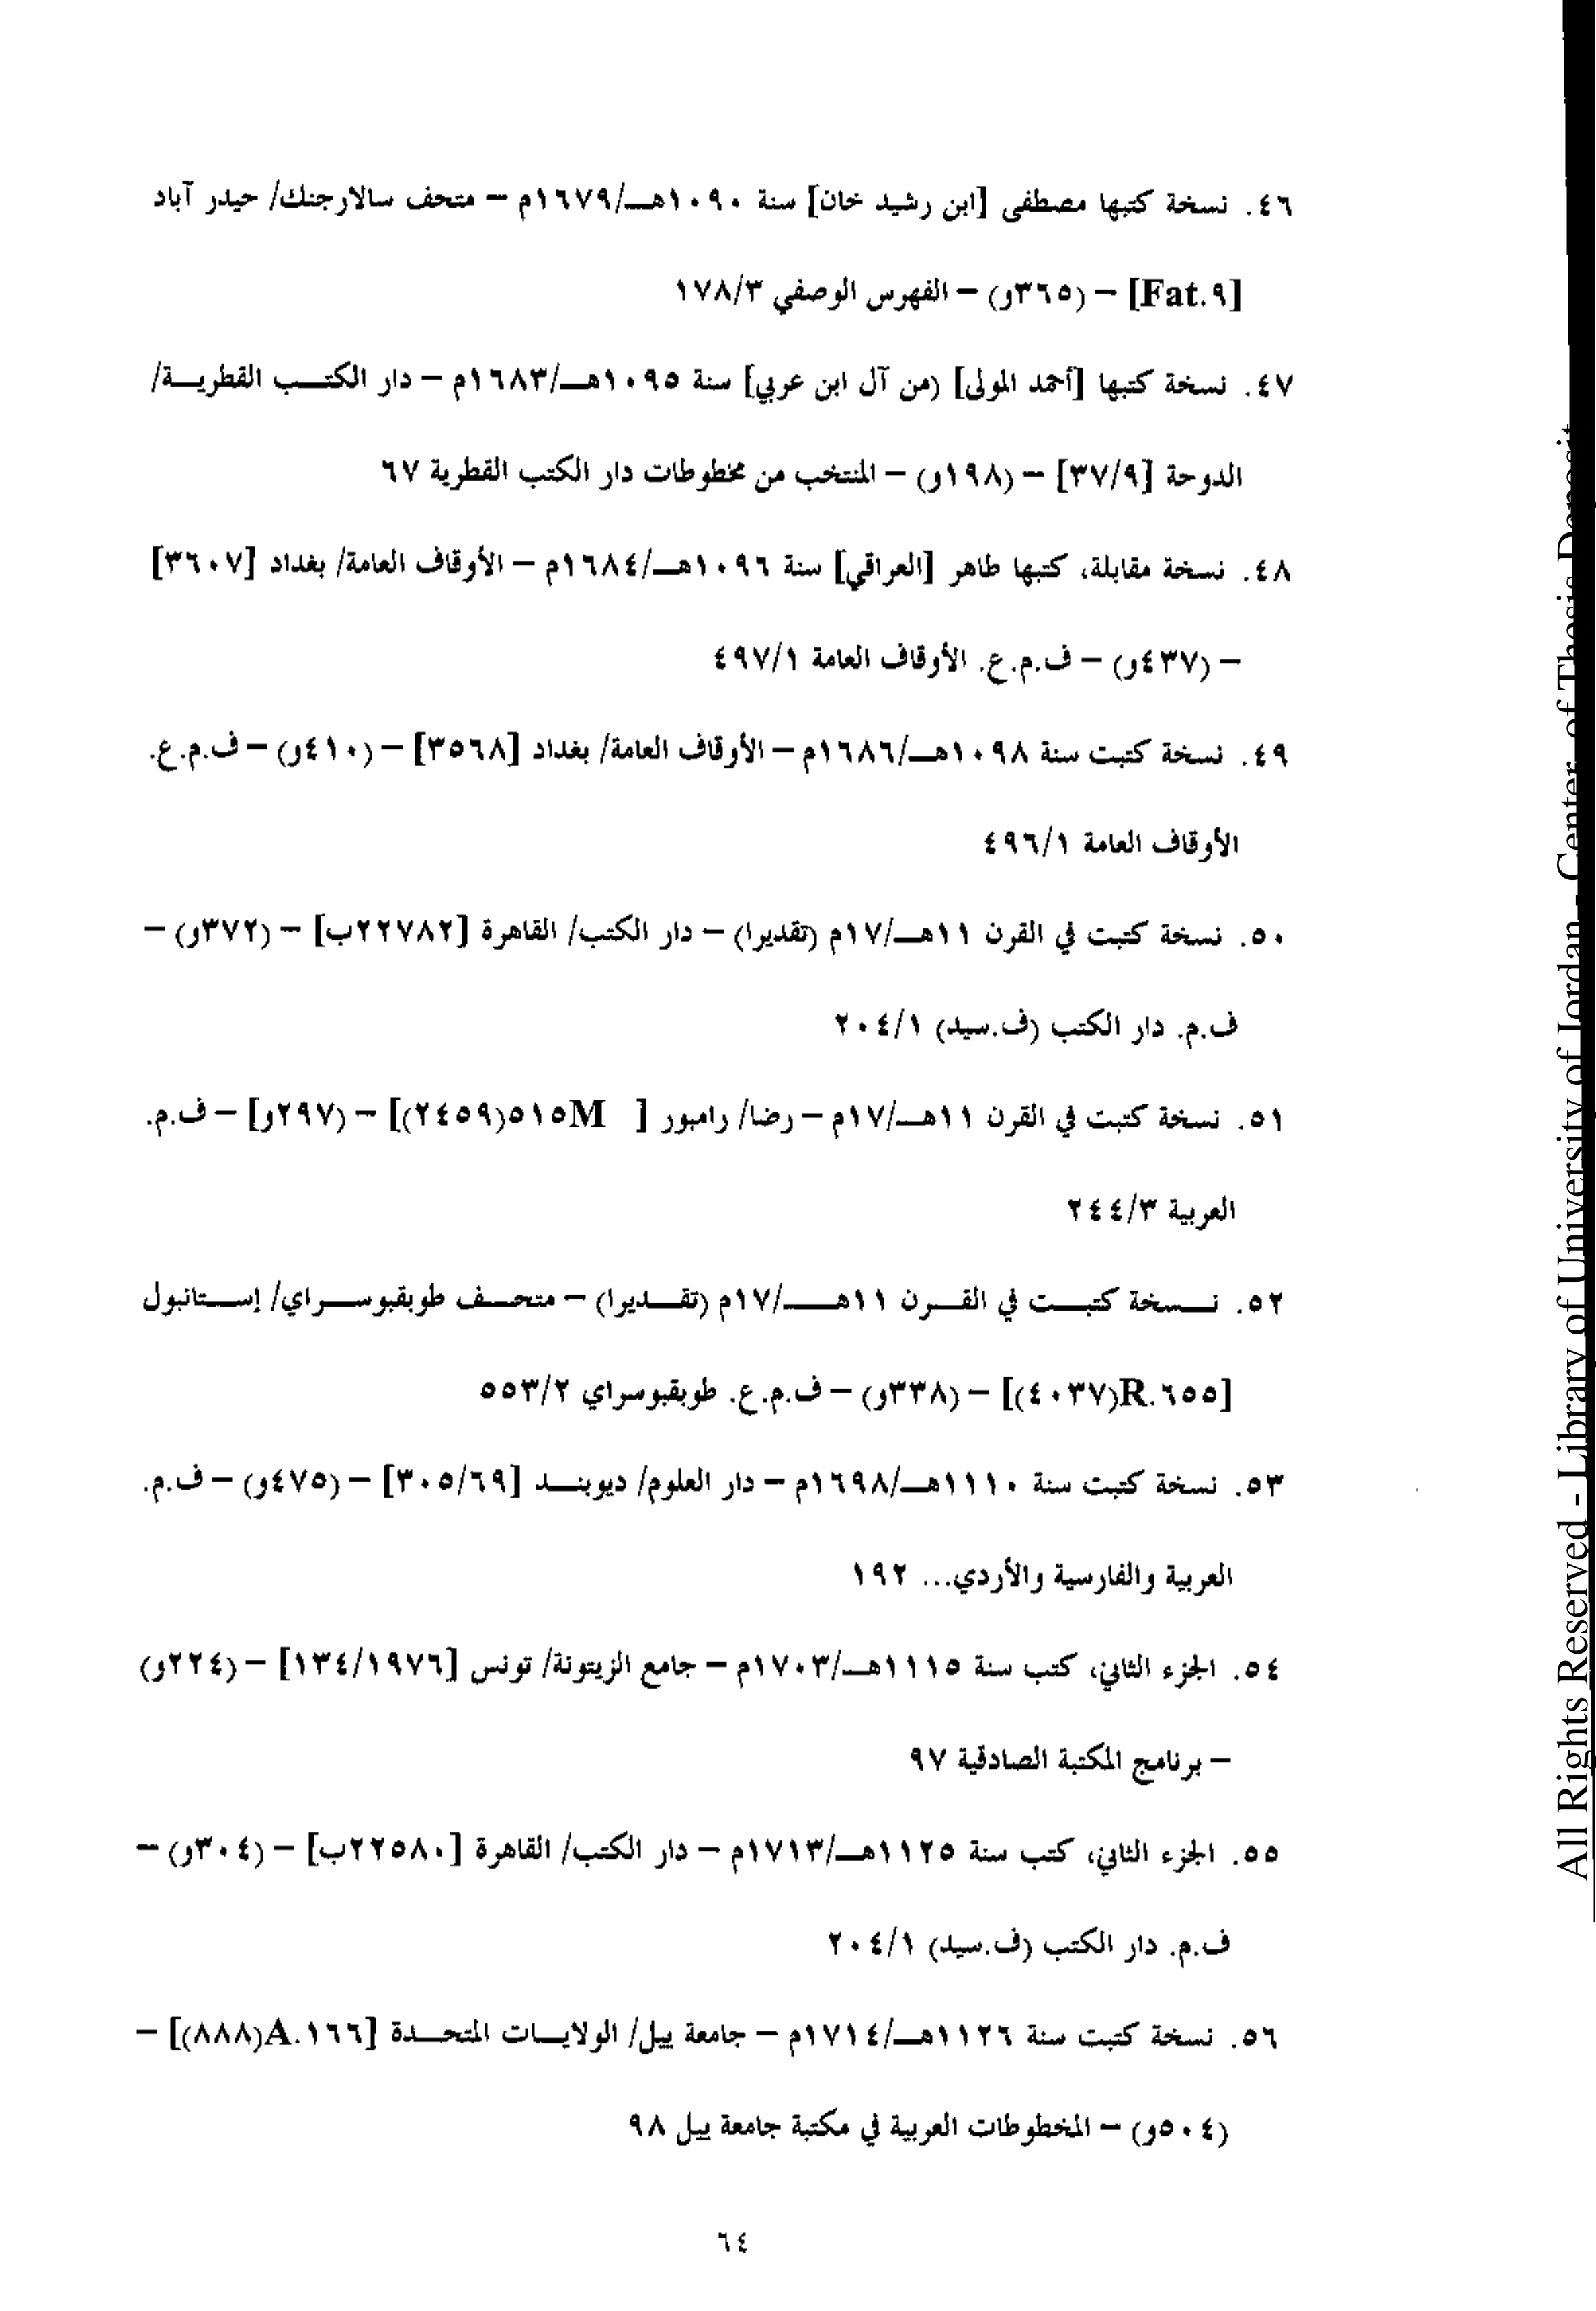 ٤٦. نسخة كتبها مصطفى [ابن رشيد خان] سنة ١٠٩٠هـ/١٦٧٩م – متحف سالارجنك/ حيدر آباد
[Fat.٩] – (٣٦٥و) – الفهرس الوصفي ١٧٨/٣
٤٧. نسخة كتبها [أحمد المولى] (من آل ابن عربي] سنة ١٠٩٥هـ/١٦٨٣م – دار الكتب القطرية/
الدوحة [٣٧/٩] – (١٩٨و) – المنتخب من مخطوطات دار الكتب القطرية ٦٧
٤٨. نسخة مقابلة، كتبها طاهر [العراقي] سنة ١٠٩٦هـ/١٦٨٤م – الأوقاف العامة/ بغداد [٣٦٠٧]
– (٤٣٧و) – ف.م.ع. الأوقاف العامة ٤٩٧/١
٤٩. نسخة كتبت سنة ١٠٩٨هـ/١٦٨٦م – الأوقاف العامة/ بغداد [٣٥٦٨] – (٤١٠و) – ف.م.ع.
الأوقاف العامة ٤٩٦/١
٥٠. نسخة كتبت في القرن ١١هـ/١٧م (تقديرا) – دار الكتب/ القاهرة [٢٢٧٨٢ب] – (٣٧٢و) –
ف.م. دار الكتب (ف.سيد) ٢٠٤/١
٥١. نسخة كتبت في القرن ١١هـ/١٧م – رضا/ رامبور [ ٥١٥M(٢٤٥٩)] – (٢٩٧و] – ف.م.
العربية ٢٤٤/٣
٥٢. نسخة كتبت في القرن ١١هـ/١٧م (تقديرا) – متحف طوبقبوسراي/ إستانبول
[R.٦٥٥(٤٠٣٧)] – (٣٣٨و) – ف.م.ع. طوبقبوسراي ٥٥٣/٢
٥٣. نسخة كتبت سنة ١١١٠هـ/١٦٩٨م – دار العلوم/ ديوبند [٣٠٥/٦٩] – (٤٧٥و) – ف.م.
العربية والفارسية والأردي... ١٩٢
٥٤. الجزء الثاني، كتب سنة ١١١٥هـ/١٧٠٣م – جامع الزيتونة/ تونس [١٣٤/١٩٧٦] – (٢٢٤و)
– برنامج المكتبة الصادقية ٩٧
٥٥. الجزء الثاني، كتب سنة ١١٢٥هـ/١٧١٣م – دار الكتب/ القاهرة [٢٢٥٨٠ب] – (٣٠٤و) –
ف.م. دار الكتب (ف.سيد) ٢٠٤/١
٥٦. نسخة كتبت سنة ١١٢٦هـ/١٧١٤م – جامعة ييل/ الولايات المتحدة [A.١٦٦(٨٨٨)] –
(٥٠٤و) – المخطوطات العربية في مكتبة جامعة ييل ٩٨
٦٤
All Rights Reserved - Library of University of Jordan - Center of Thesis Deposit